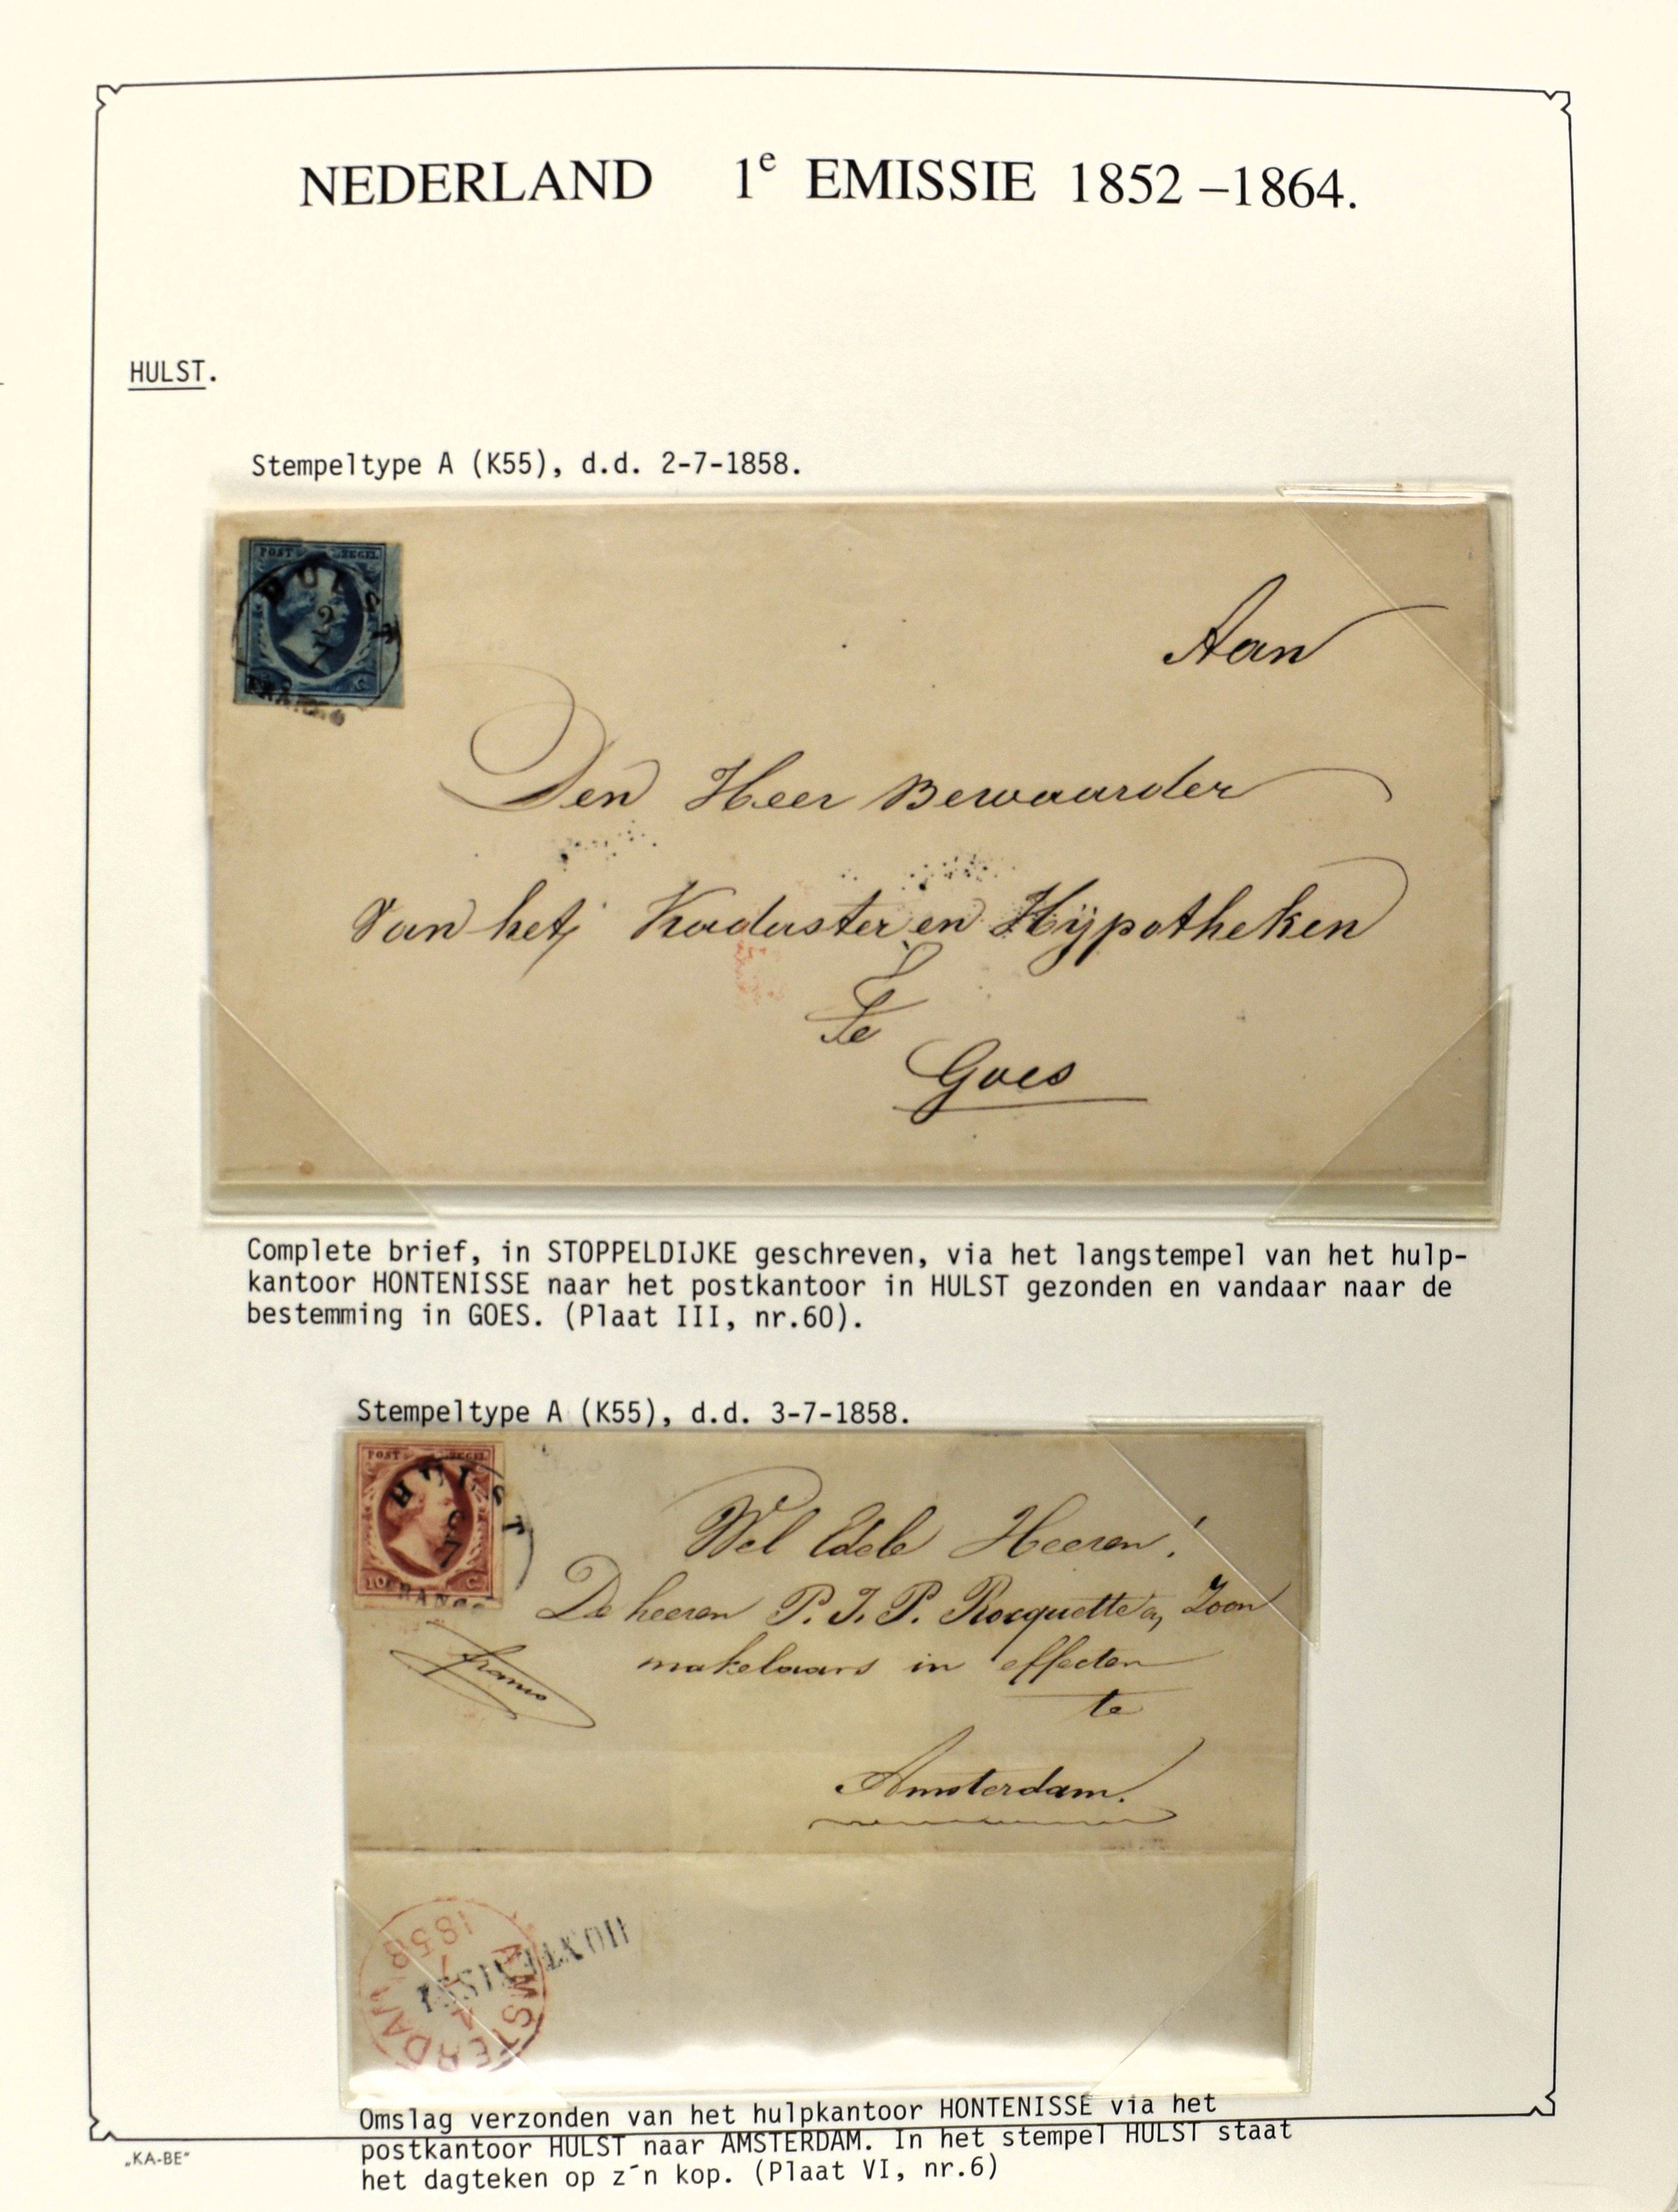 NEDERLAND 1e EMISSIE 1852 –1864.
HULST.
Stempeltype A (K55), d.d. 2-7-1858.
POST ZEGEL
HULST
2
7
FRANCO
C
Aan
Den Heer Bewaarder
Van het Kadaster en Hÿpotheken
Te
Goes
Complete brief, in STOPPELDIJKE geschreven, via het langstempel van het hulp-
kantoor HONTENISSE naar het postkantoor in HULST gezonden en vandaar naar de
bestemming in GOES. (Plaat III, nr.60).
Stempeltype A (K55), d.d. 3-7-1858.
POST ZEGEL
HULST
3
7
10 C
FRANCO
Wel Edele Heeren!
De heeren P. J. P. Rocquette en Zoon
franco
makelaars in effecten
te
Amsterdam.
HONTENISSE
AMSTERDAM
4
7
1858
Omslag verzonden van het hulpkantoor HONTENISSE via het
postkantoor HULST naar AMSTERDAM. In het stempel HULST staat
het dagteken op z´n kop. (Plaat VI, nr.6)
„KA-BE“